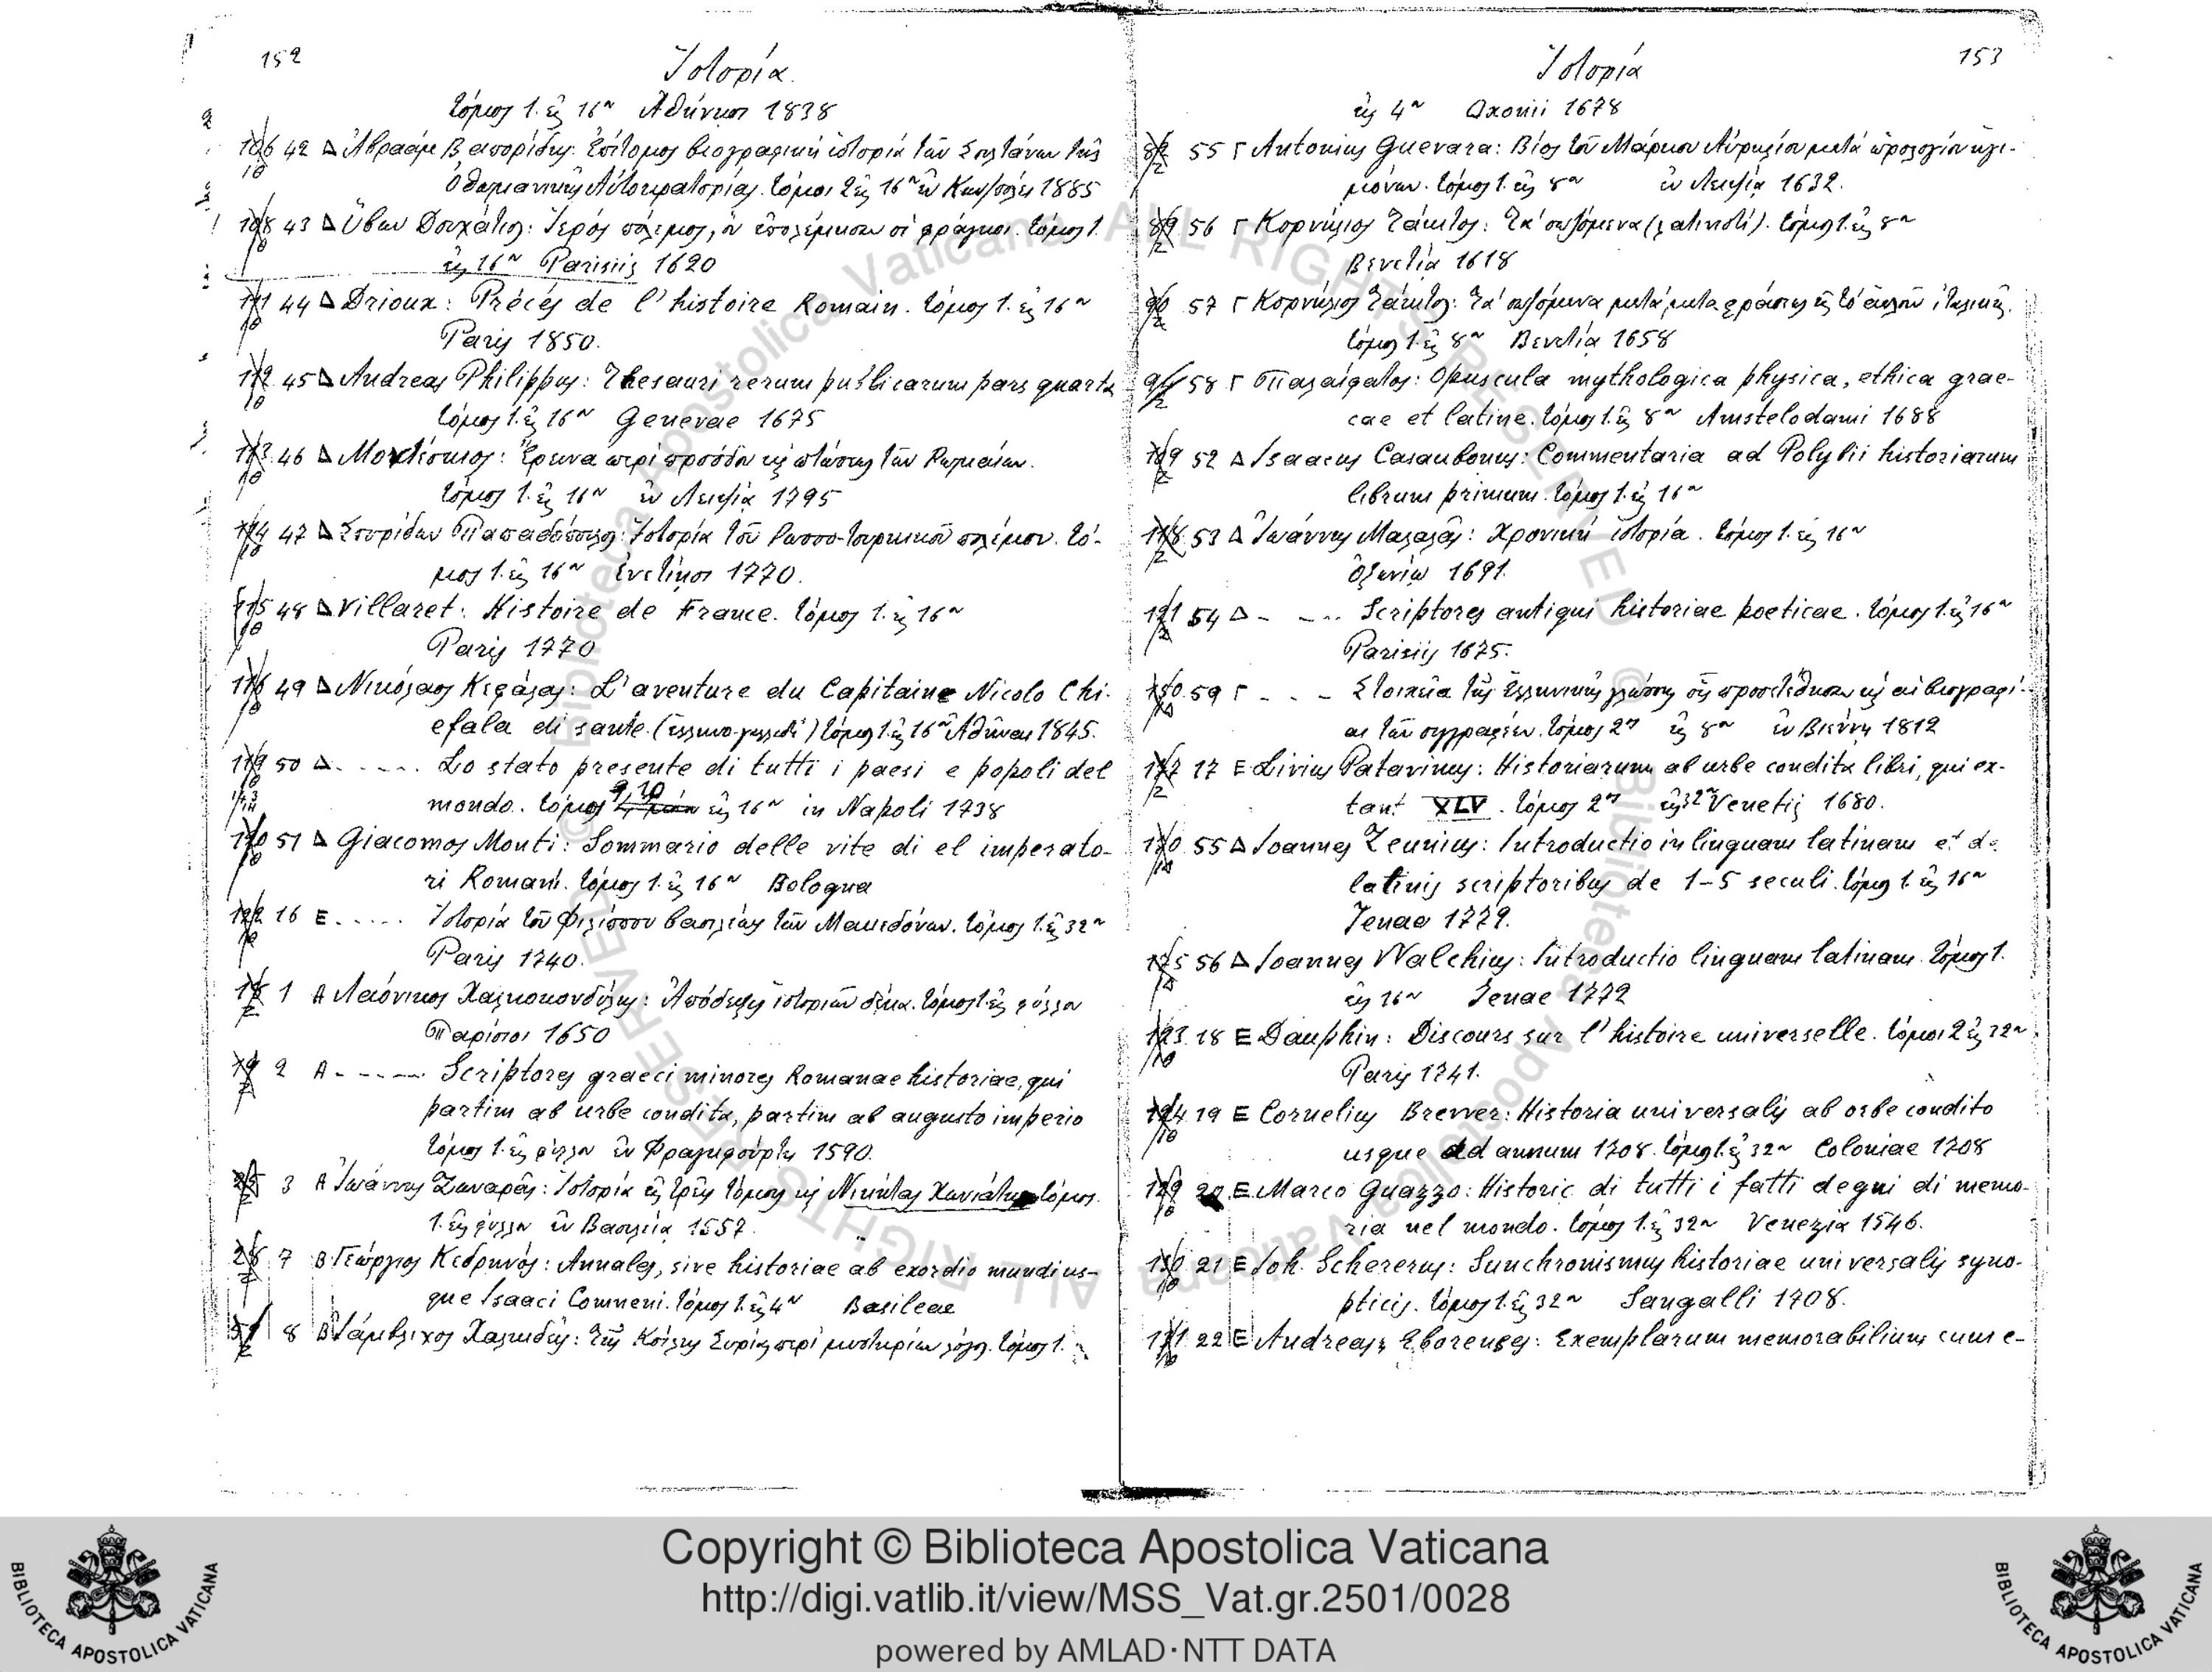 152
Ἱστορία.
τόμος 1. εἰς 16ον Ἀθήνησι 1838
106/10 42 Δ Ἀβραὰμ Βαπορίδης: Ἐπίτομος βιογραφικὴ ἱστορία τῶν Σουλτάνων τῆς
Ὀθωμανικῆς Αὐτοκρατορίας. τόμοι 2 εἰς 16ον ἐν Κων/πόλει 1885
108/10 43 Δ Ὕβων Δουχάτιος: Ἱερὸς πόλεμος, ὃν ἐπολέμησαν οἱ φράγκοι. τόμος 1.
εἰς 16ον Parisiis 1620
111/10 44 Δ Drioux: Précés de l'histoire Romain. τόμος 1. εἰς 16ον
Paris 1850.
112/10 45 Δ Andreas Philippus: Thesauri rerum publicarum pars quarta
τόμος 1. εἰς 16ον Genevae 1675
113/10 46 Δ Μοντέσκιος: Ἔρευνα περὶ προόδου καὶ πτώσεως τῶν Ρωμαίων.
τόμος 1. εἰς 16ον ἐν Λειψίᾳ 1795
114/10 47 Δ Σπυρίδων Παπαδόπουλος: Ἱστορία τοῦ Ρωσσο-τουρκικοῦ πολέμου. τό-
μος 1. εἰς 16ον Ἐνετίησι 1770.
115/10 48 Δ Villaret: Histoire de France. τόμος 1. εἰς 16ον
Paris 1770
116/10 49 Δ Νικόλαος Κεφάλας: L'aventure du Capitaine Nicolo Chi-
efala di sante. (ἑλληνο-γαλλιστὶ) τόμος 1. εἰς 16ον Ἀθῆναι 1845.
119/10 50 Δ ..... Lo stato presente di tutti i paesi e popoli del
mondo. τόμος 9, 10 εἰς 16ον in Napoli 1738
120/10 51 Δ Giacomos Monti: Sommario delle vite di el imperato-
ri Romani. τόμος 1. εἰς 16ον Bologna
122/10 16 Ε ..... Ἱστορία τοῦ Φιλίππου βασιλέως τῶν Μακεδόνων. τόμος 1. εἰς 32ον
Paris 1740.
18/2 1 Α Λαόνικος Χαλκοκονδύλης: Ἀπόδειξις ἱστοριῶν δέκα. τόμος 1 εἰς φύλλον
Παρίσιοι 1650
19/2 2 Α - - - - Scriptores graeci minores Romanae historiae, qui
partim ab urbe condita, partim ab augusto imperio
τόμος 1. εἰς φύλλον ἐν Φραγκφούρτῃ 1590.
25/2 3 Α Ἰωάννης Ζωναρᾶς: Ἱστορία εἰς τρεῖς τόμους καὶ Νικήτας Χωνιάτης τόμος
1. εἰς φύλλον ἐν Βασιλείᾳ 1557.
28/2 7 Β Γεώργιος Κεδρηνός: Annales, sive historiae ab exordio mundi us-
que Isaaci Comneni. τόμος 1. εἰς 4ον Basileae
8 Β Ἰάμβλιχος Χαλκιδεύς: τῆς Κοίλης Συρίας περὶ μυστηρίων λόγος. τόμος 1.
153
Ἱστορία
εἰς 4ον Oxonii 1678
55 Γ Antonius Guevara: Βίος τοῦ Μάρκου Αὐρηλίου μετὰ ὡρολογίου ἡγε-
μόνων. τόμος 1. εἰς 8ον ἐν Λειψίᾳ 1632.
89/2 56 Γ Κορνήλιος Τάκιτος: Τὰ σωζόμενα (λατινιστί). τόμος 1. εἰς 8ον
Βενετία 1618
90/2 57 Γ Κορνήλιος Τάκιτος: Τὰ σωζόμενα μετὰ μεταφράσεως εἰς τὸ ἁπλοῦν ἰταλικῆς.
τόμος 1. εἰς 8ον Βενετία 1658
58 Γ Παλαίφατος: Opuscula mythologica physica, ethica grae-
cae et latine. τόμος 1. εἰς 8ον Amstelodami 1688
109/2 52 Δ Isaacus Casaubonus: Commentaria ad Polybii historiarum
librum primum. τόμος 1. εἰς 16ον
118/2 53 Δ Ἰωάννης Μαλαλᾶς: Χρονικὴ ἱστορία. τόμος 1. εἰς 16ον
Ὀξωνίῳ 1691.
121/2 54 Δ - - .. Scriptores antiqui historiae poeticae. τόμος 1. εἰς 16ον
Parisiis 1675.
59 Γ - - - Στοιχεῖα τῆς ἑλληνικῆς γλώσσης οἷς προσετέθησαν καὶ αἱ βιογραφί-
αι τῶν συγγραφέων. τόμος 2ος εἰς 8ον ἐν Βιέννῃ 1812
127/2 17 Ε Livius Patavinus: Historiarum ab urbe condita libri, qui ex-
tant XLV. τόμος 2ος εἰς 32ον Venetiis 1680.
55 Δ Ioannes Zeunius: Introductio in linguam latinam et de
latinis scriptoribus de 1-5 seculi. τόμος 1. εἰς 16ον
Jenae 1779.
56 Δ Ioannes Walchius: Introductio linguam latinam. τόμος 1.
εἰς 16ον Jenae 1772
123/10 18 Ε Dauphin: Discours sur l'histoire universelle. τόμοι 2 εἰς 32ον
Paris 1741.
124/10 19 Ε Cornelius Brewer: Historia universalis ab orbe condito
usque ad annum 1708. τόμος 1. εἰς 32ον Coloniae 1708
129/10 20 Ε Marco Guazzo: Historie di tutti i fatti degni di memo-
ria nel mondo. τόμος 1. εἰς 32ον Venezia 1546.
130/10 21 Ε Joh. Schererus: Sunchronismus historiae universalis syno-
pticis. τόμος 1. εἰς 32ον Sangalli 1708.
131/10 22 Ε Andreas Eborenses: Exemplarum memorabilium cum e-
Copyright © Biblioteca Apostolica Vaticana
http://digi.vatlib.it/view/MSS_Vat.gr.2501/0028
powered by AMLAD·NTT DATA
BIBLIOTECA APOSTOLICA VATICANA
BIBLIOTECA APOSTOLICA VATICANA